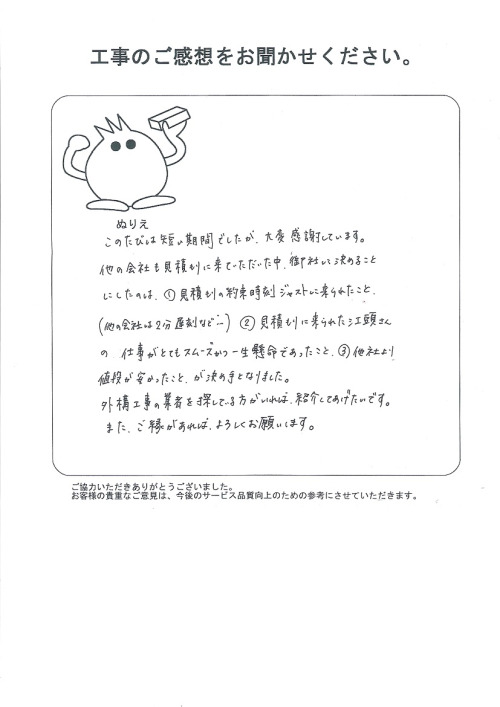 工事のご感想をお聞かせください。
ぬりえ
このたびは短い期間でしたが、大変感謝しています。
他の会社も見積もりに来ていただいた中、御社に決めること
にしたのは、①見積もりの約束時刻ジャストに来られたこと、
(他の会社は2分遅刻など…) ②見積もりに来られた江頭さん
の 仕事がとてもスムーズかつ一生懸命であったこと、③他社より
値段が安かったこと、が決め手となりました。
外構工事の業者を探している方がいれば、紹介してあげたいです。
また、ご縁があれば、よろしくお願いします。
ご協力いただきありがとうございました。
お客様の貴重なご意見は、今後のサービス品質向上のための参考にさせていただきます。